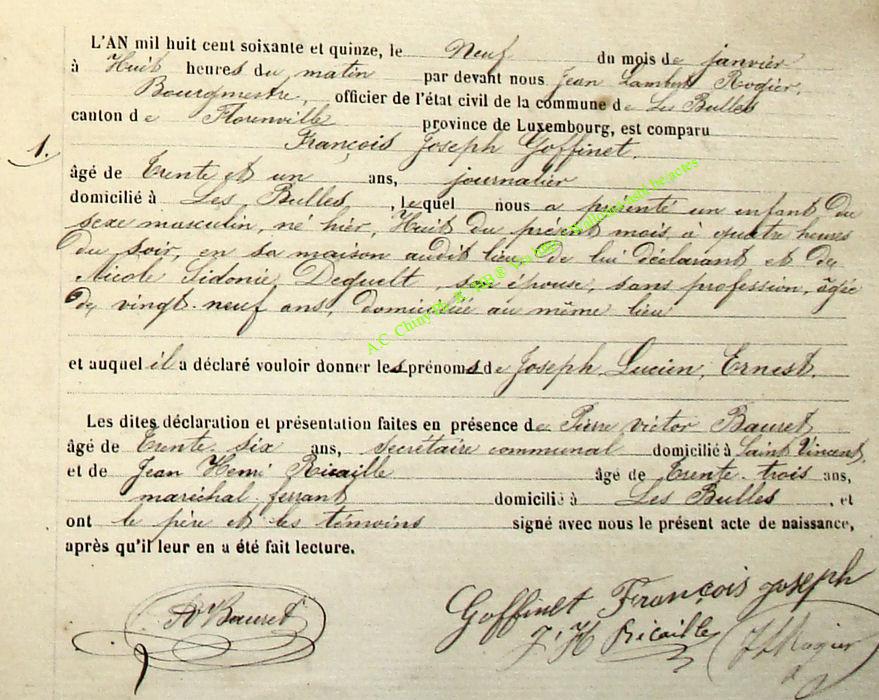 L'AN mil huit cent soixante et quinze, le Neuf du mois de janvier
à Huit heures du matin par devant nous Jean Lambert Rogier,
Bourgmestre, officier de l'état civil de la commune de Les Bulles
canton de Florenville province de Luxembourg, est comparu
1. François Joseph Goffinet,
âgé de Trente et un ans, journalier
domicilié à Les Bulles, lequel nous a présenté un enfant du
sexe masculin, né hier, Huit du présent mois, à quatre heures
du soir, en sa maison audit lieu, de lui déclarant et de
Nicole Sidonie Dequelt, son épouse, sans profession, âgée
de vingt-neuf ans, domiciliée au même lieu
et auquel il a déclaré vouloir donner les prénoms de Joseph, Lucien, Ernest.
Les dites déclaration et présentation faites en présence de Pierre victor Bauret,
âgé de Trente-six ans, secrétaire communal domicilié à Saint Vincent,
et de Jean Henri Ricaille âgé de Trente-trois ans,
maréchal-ferrant domicilié à Les Bulles, et
ont le père et les témoins signé avec nous le présent acte de naissance,
après qu'il leur en a été fait lecture.
Bauret Goffinet François joseph
J. H Ricaille Rogier
A.C. Chiny